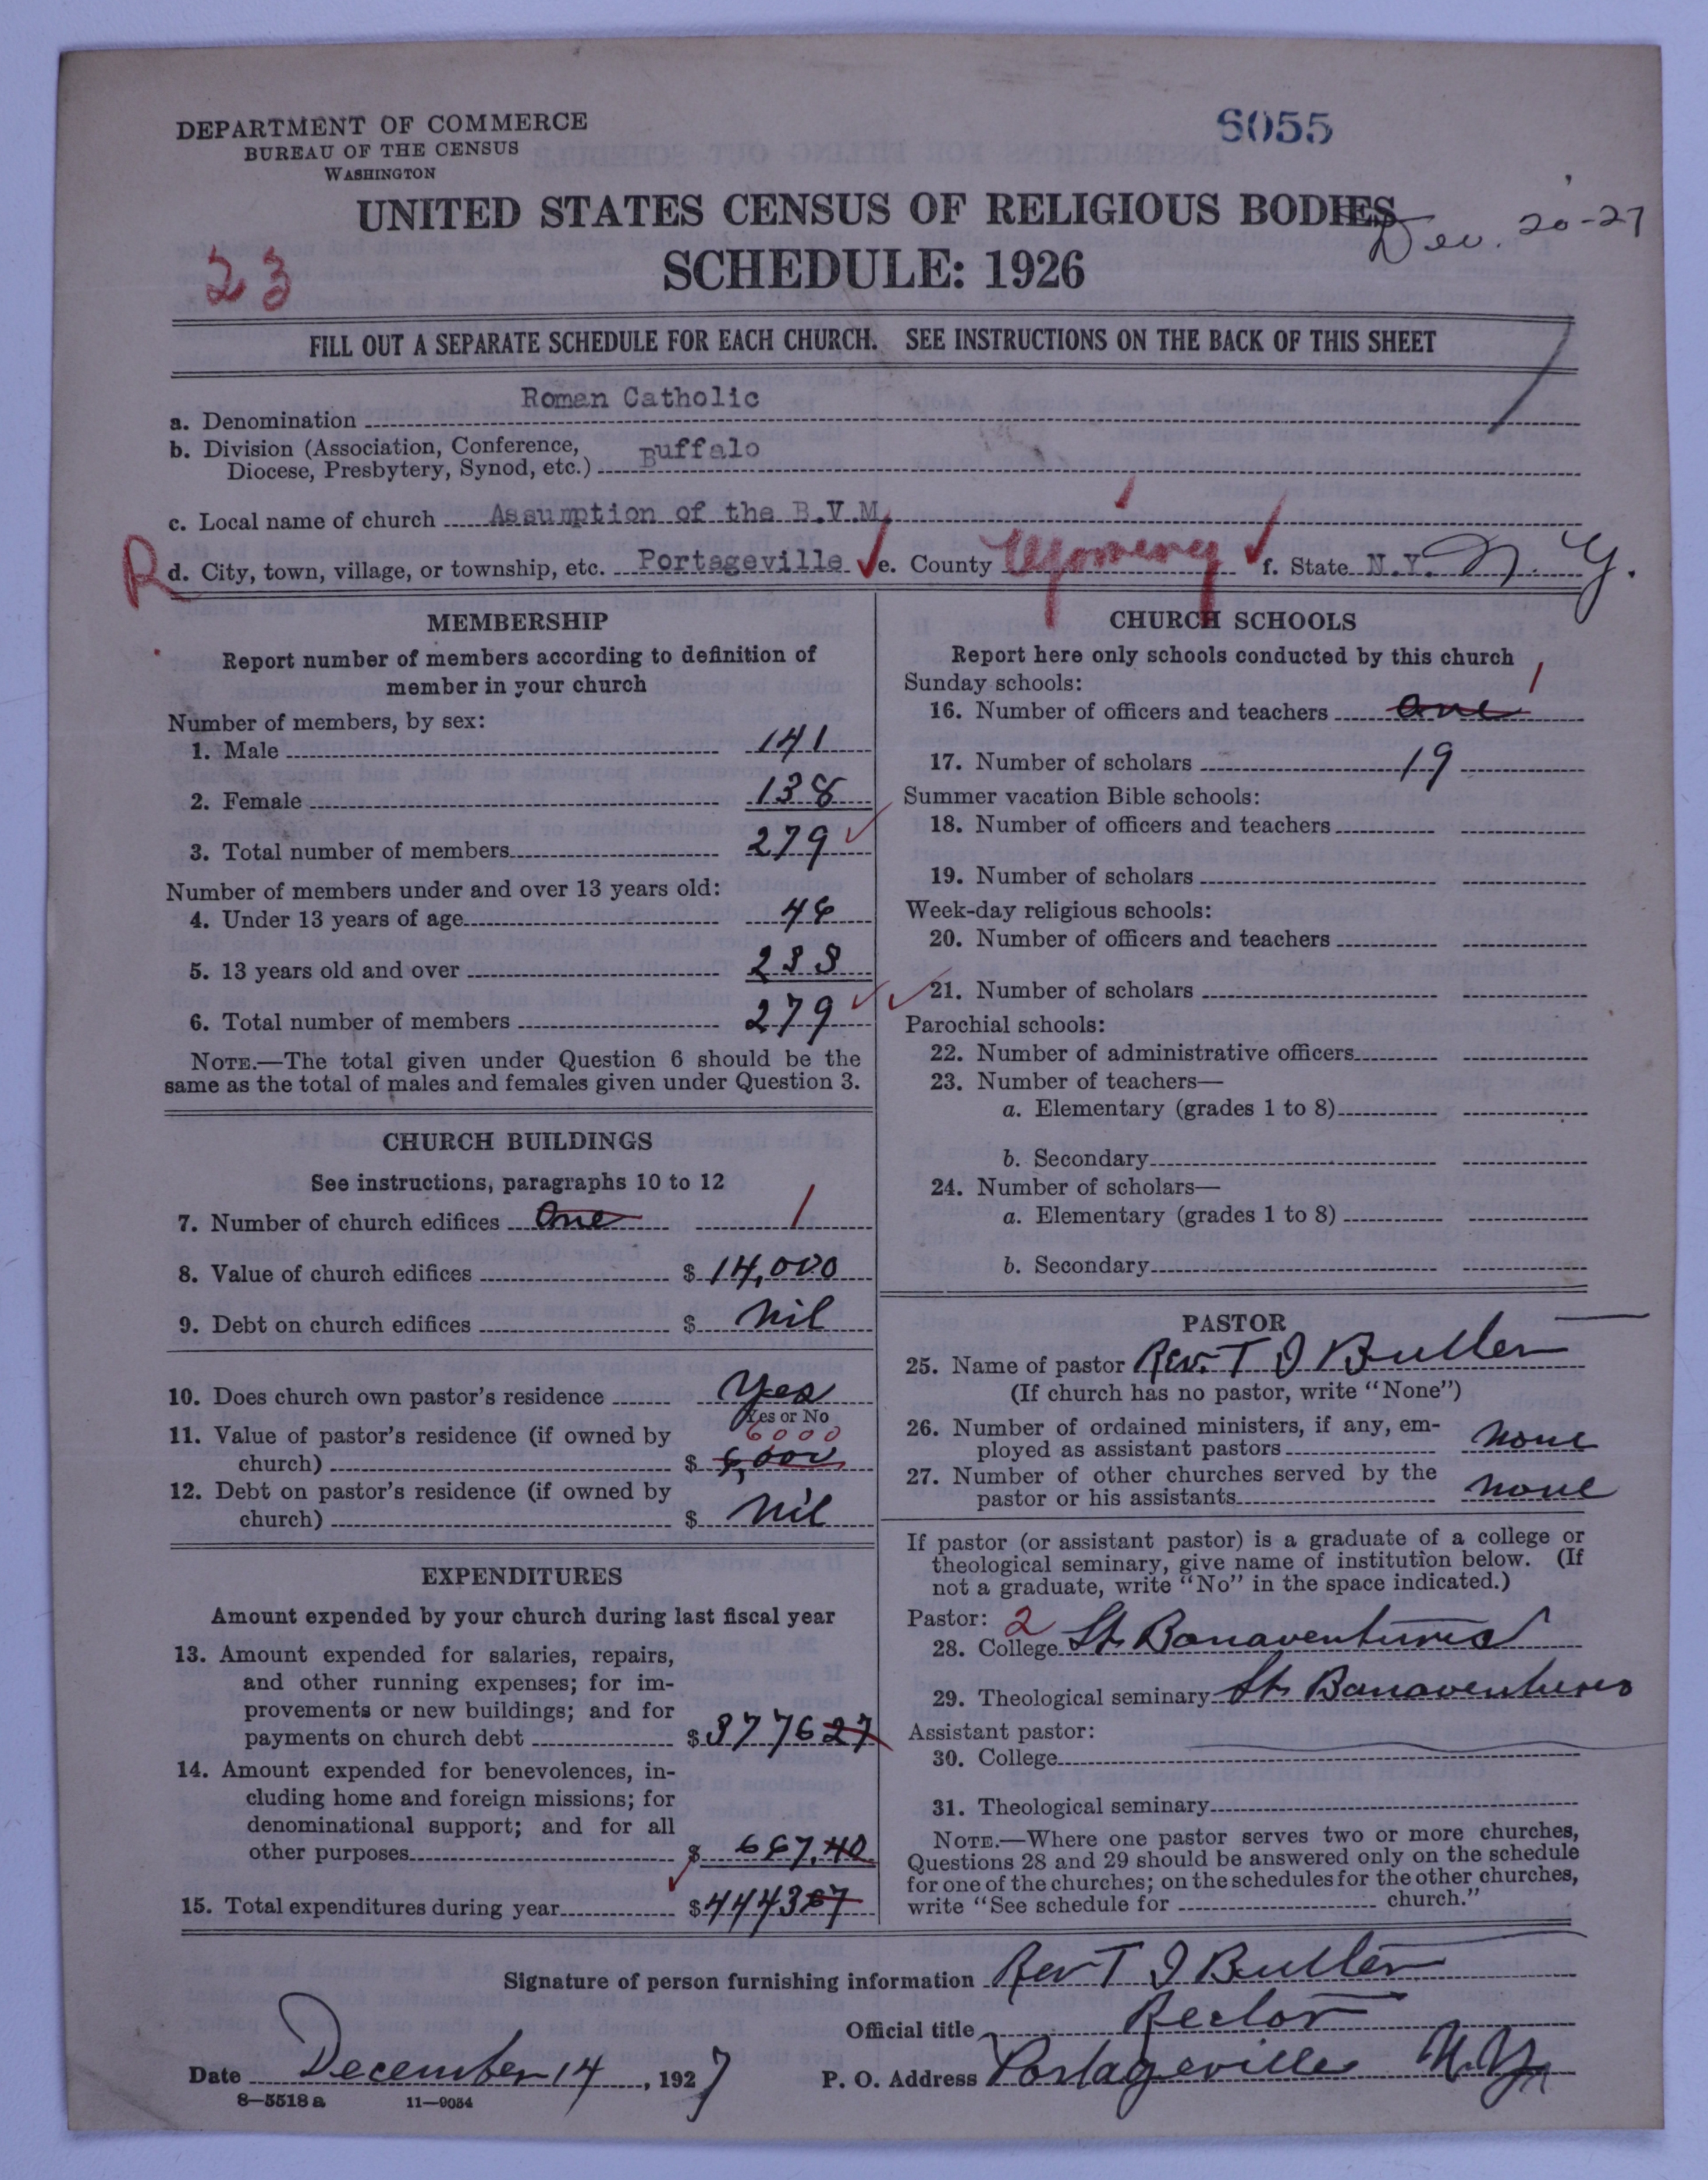 DEPARTMENT OF COMMERCE
BUREAU OF THE CENSUS
WASHINGTON
6055
UNITED STATES CENSUS OF RELIGIOUS BODIES
Dec. 20-27
SCHEDULE: 1926
23
FILL OUT A SEPARATE SCHEDULE FOR EACH CHURCH. SEE INSTRUCTIONS ON THE BACK OF THIS SHEET
a. Denomination Roman Catholic
b. Division (Association, Conference,
Diocese, Presbytery, Synod, etc.) Buffalo
c. Local name of church Assumption of the B.V.M.
R d. City, town, village, or township, etc. Portageville e. County Wyoming f. State N.Y. N.Y.
MEMBERSHIP
Report number of members according to definition of
member in your church
Number of members, by sex:
1. Male 141
2. Female 138
3. Total number of members 279
Number of members under and over 13 years old:
4. Under 13 years of age 46
5. 13 years old and over 233
6. Total number of members 279
NOTE.—The total given under Question 6 should be the
same as the total of males and females given under Question 3.
CHURCH BUILDINGS
See instructions, paragraphs 10 to 12
7. Number of church edifices One 1
8. Value of church edifices $ 14,000
9. Debt on church edifices $ nil
10. Does church own pastor's residence Yes
Yes or No
11. Value of pastor's residence (if owned by 6000
church) $ 6,000
12. Debt on pastor's residence (if owned by
church) $ nil
EXPENDITURES
Amount expended by your church during last fiscal year
13. Amount expended for salaries, repairs,
and other running expenses; for im-
provements or new buildings; and for
payments on church debt $ 3776 27
14. Amount expended for benevolences, in-
cluding home and foreign missions; for
denominational support; and for all
other purposes $ 667.40
15. Total expenditures during year $ 4443 67
CHURCH SCHOOLS
Report here only schools conducted by this church
Sunday schools:
16. Number of officers and teachers one 1
17. Number of scholars 19
Summer vacation Bible schools:
18. Number of officers and teachers
19. Number of scholars
Week-day religious schools:
20. Number of officers and teachers
21. Number of scholars
Parochial schools:
22. Number of administrative officers
23. Number of teachers—
a. Elementary (grades 1 to 8)
b. Secondary
24. Number of scholars—
a. Elementary (grades 1 to 8)
b. Secondary
PASTOR
25. Name of pastor Rev. T J Butler
(If church has no pastor, write "None")
26. Number of ordained ministers, if any, em-
ployed as assistant pastors none
27. Number of other churches served by the
pastor or his assistants none
If pastor (or assistant pastor) is a graduate of a college or
theological seminary, give name of institution below. (If
not a graduate, write "No" in the space indicated.)
Pastor: 2
28. College St Bonaventures
29. Theological seminary St Bonaventures
Assistant pastor:
30. College
31. Theological seminary
NOTE.—Where one pastor serves two or more churches,
Questions 28 and 29 should be answered only on the schedule
for one of the churches; on the schedules for the other churches,
write "See schedule for church."
Signature of person furnishing information Rev T J Butler
Official title Rector
Date December 14, 1927 P. O. Address Portageville N.Y.
8—5518 a 11—9034